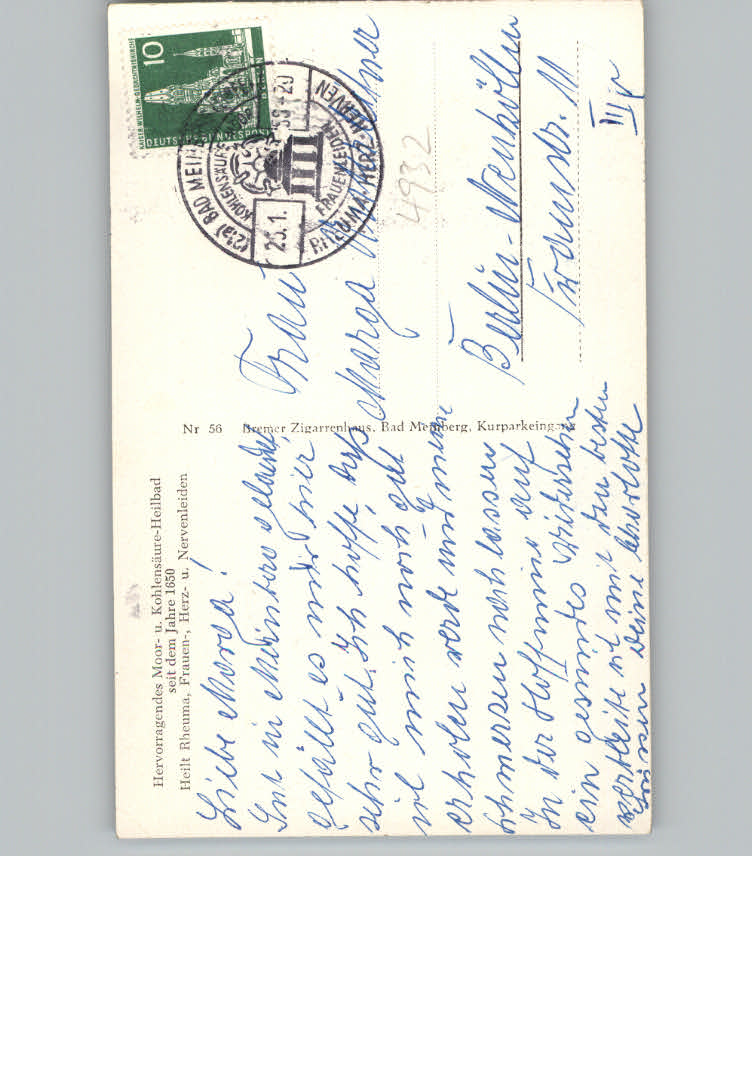 Hervorragendes Moor- u. Kohlensäure-Heilbad
seit dem Jahre 1650
Heilt Rheuma, Frauen-, Herz- u. Nervenleiden
Liebe Marga!
Gut in Meinberg gelandet,
gefällt es mir hier
sehr gut. Ich hoffe, daß
ich mich noch gut
erholen werde und meine
Schmerzen nachlassen
In der Hoffnung auf
ein gesundes Wiedersehen
verbleibe ich mit den besten
Grüssen Deine Charlotte
Nr 56 Bremer Zigarrenhaus, Bad Meinberg, Kurparkeingang
10
KAISER-WILHELM-GEDÄCHTNISKIRCHE
DEUTSCHE BUNDESPOST
(21a) BAD MEINBERG
KOHLENSÄURE
23.1.58-20
FRAUENLEIDEN
RHEUMA-HERZ-NERVEN
Frau
Marga
Berlin-Neukölln
11
III
4932